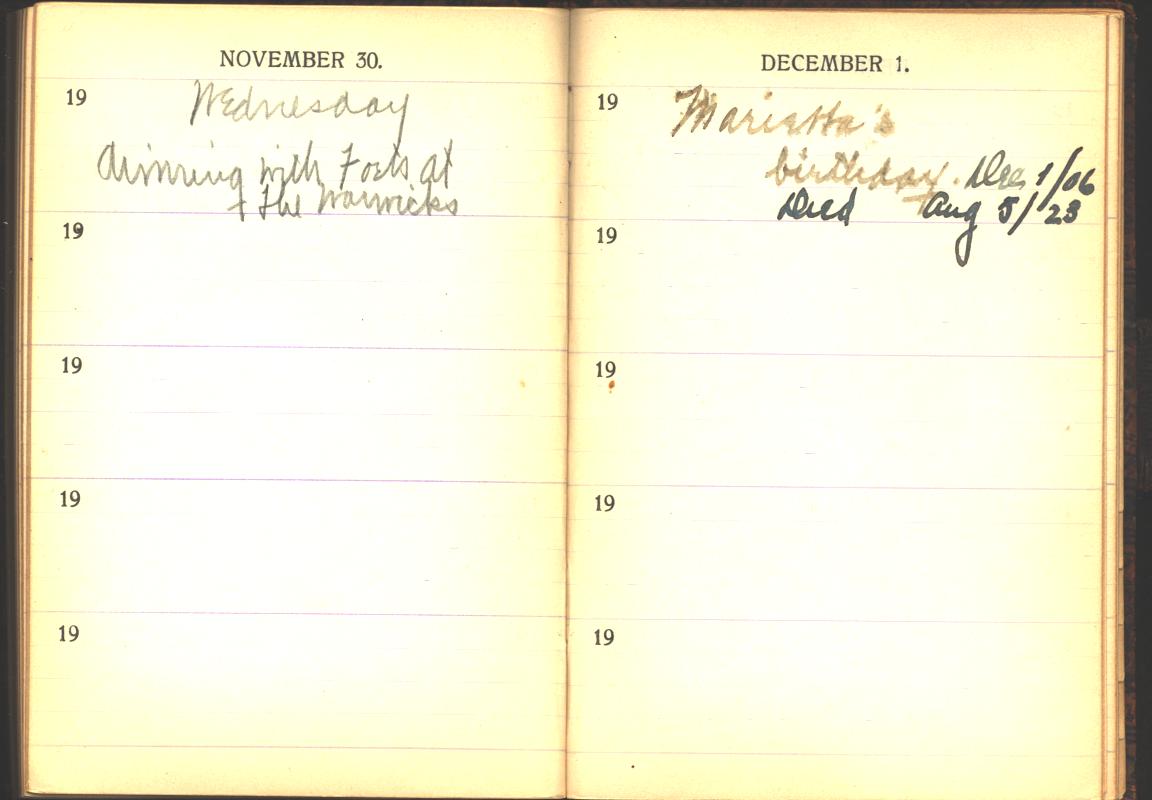 NOVEMBER 30.
19 Wednesday
dinning with Forts at
+ the Warwicks
19
19
19
19
DECEMBER 1.
19 Marietta's
birthday. Dec 1/06
Died Aug 5/23
19
19
19
19